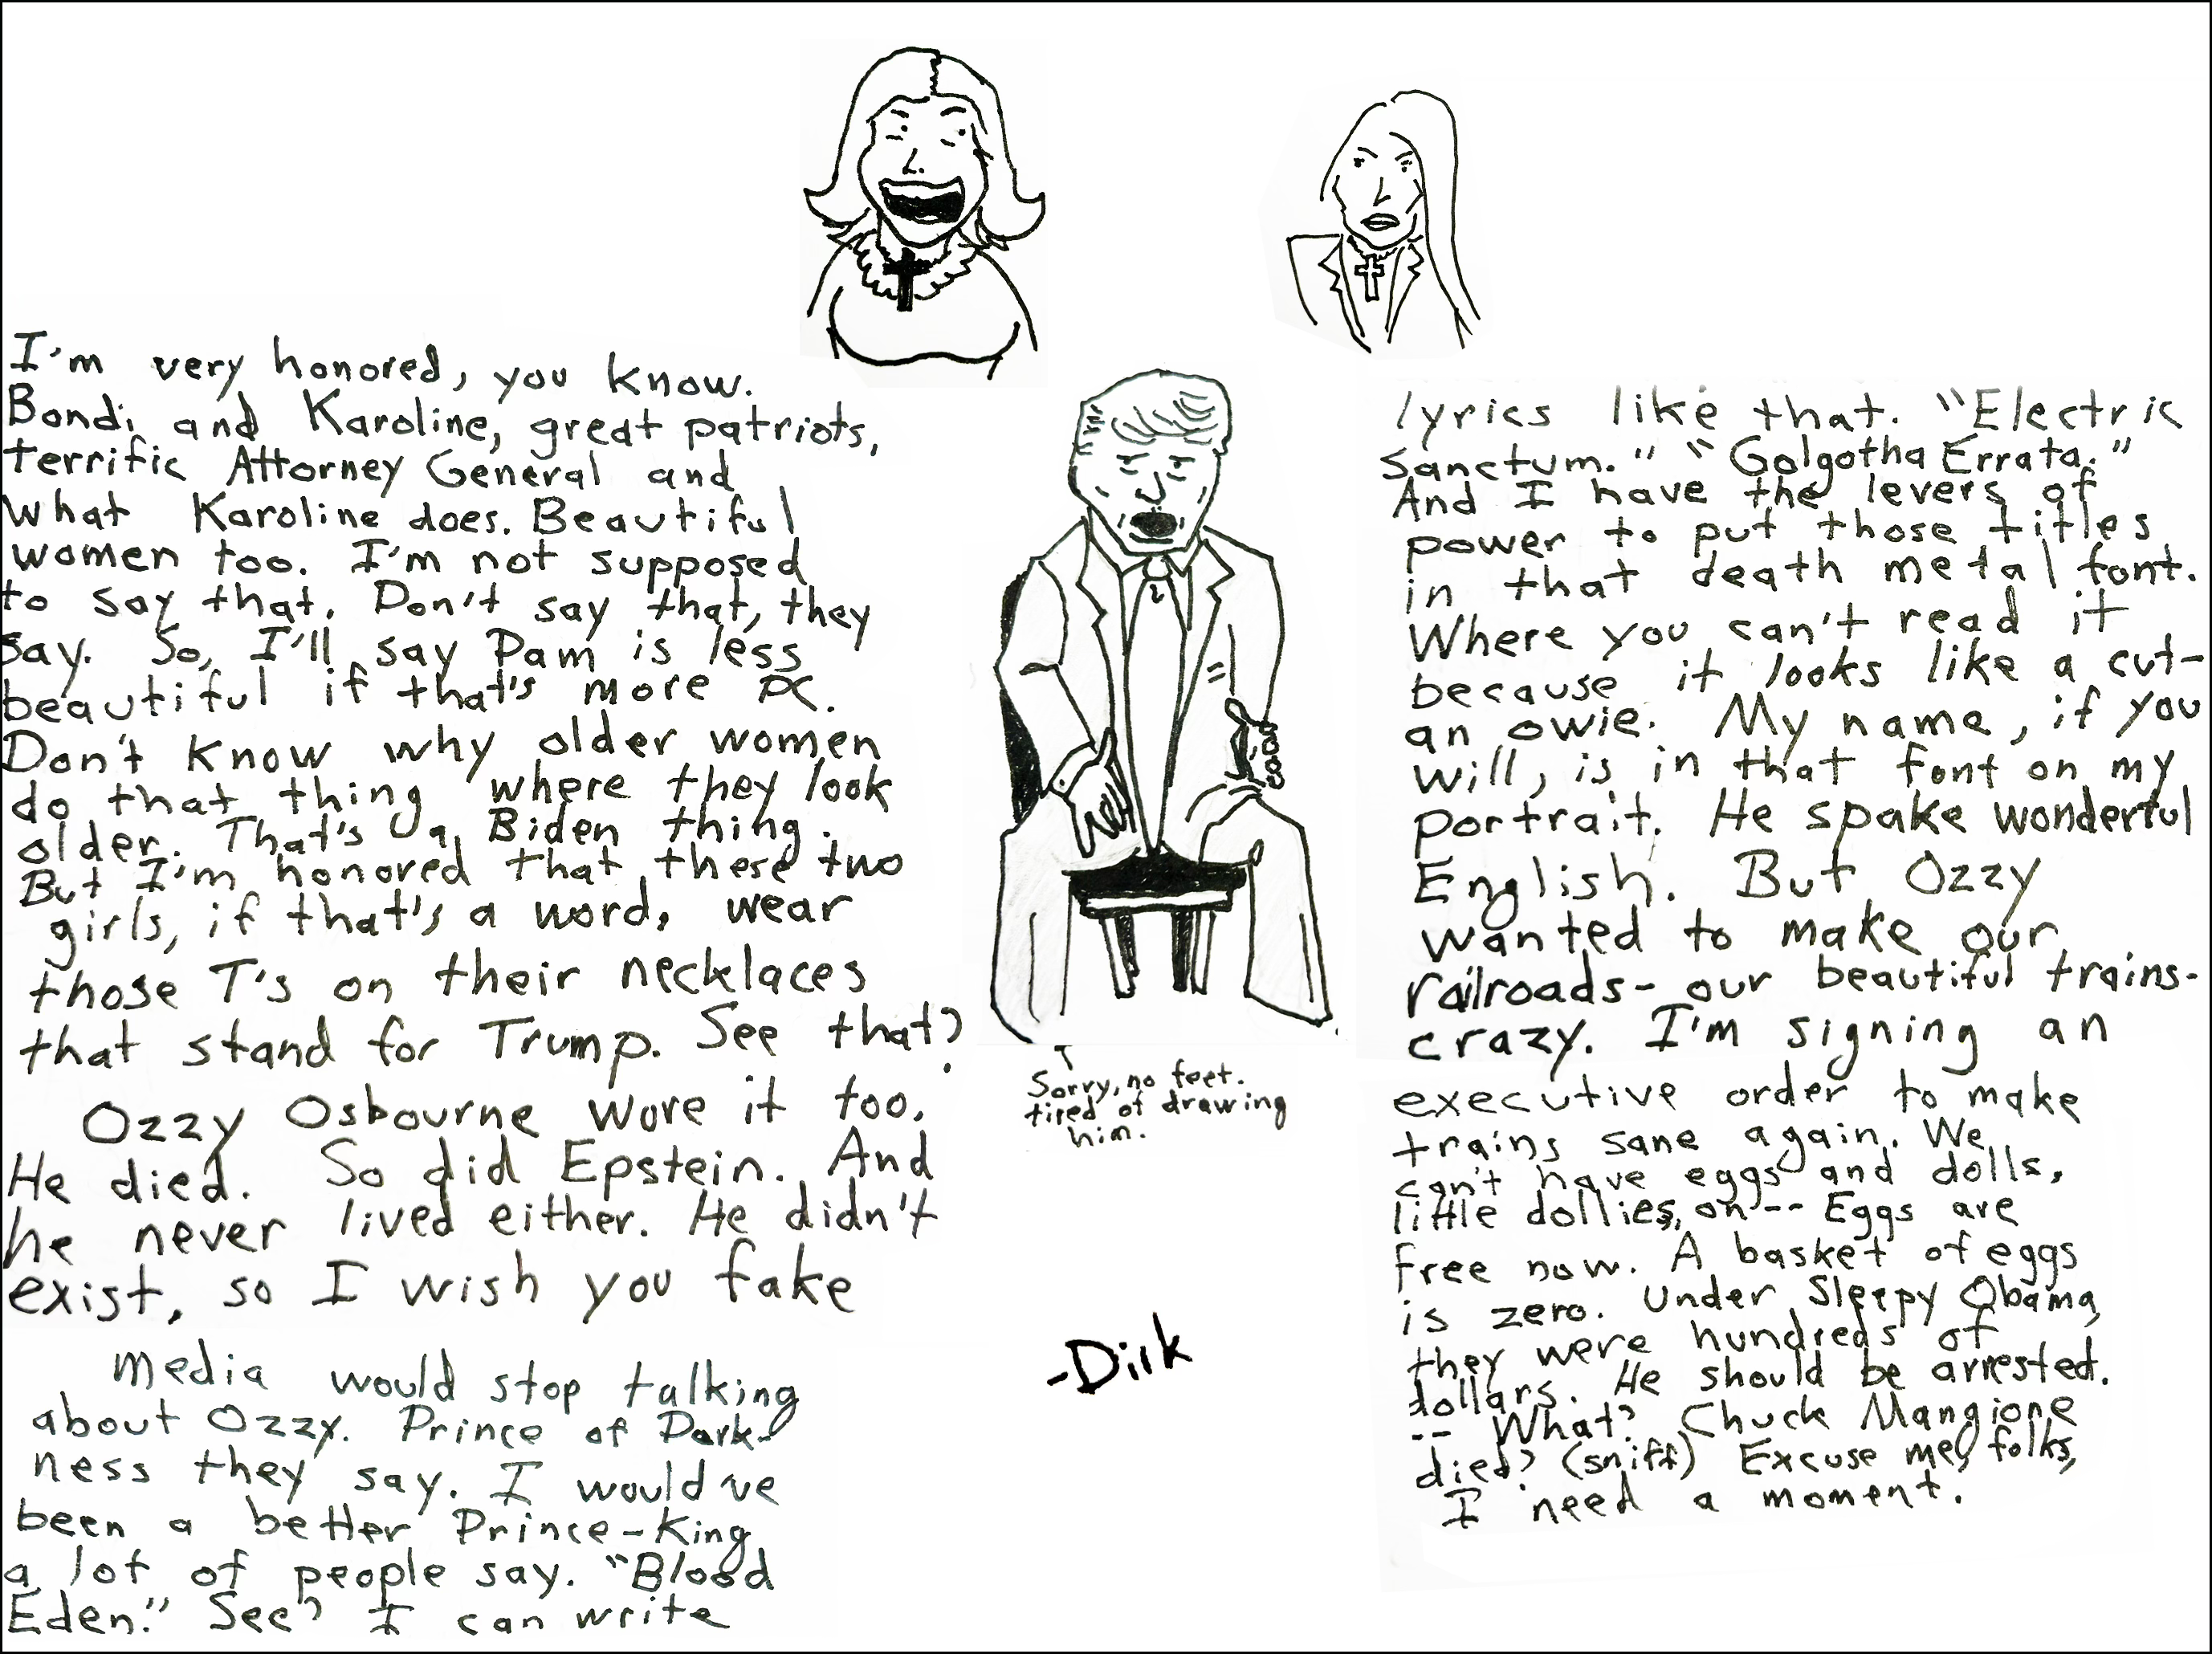 I'm very honored, you know.
Bondi and Karoline, great patriots,
terrific Attorney General and
what Karoline does. Beautiful
women too. I'm not supposed
to say that. Don't say that, they
say. So, I'll say Pam is less
beautiful if that's more PC.
Don't know why older women
do that thing where they look
older. That's a Biden thing.
But I'm honored that these two
girls, if that's a word, wear
those T's on their necklaces
that stand for Trump. See that?
Ozzy Osbourne wore it too.
He died. So did Epstein. And
he never lived either. He didn't
exist, so I wish you fake
media would stop talking
about Ozzy. Prince of Dark-
ness they say. I would've
been a better Prince-King
a lot of people say. "Blood
Eden." See? I can write
Sorry, no feet.
tired of drawing
him.
-Dirk
lyrics like that. "Electric
Sanctum." "Golgotha Errata."
And I have the levers of
power to put those titles
in that death metal font.
Where you can't read it
because it looks like a cut-
an owie. My name, if you
will, is in that font on my
portrait. He spake wonderful
English. But Ozzy
wanted to make our
railroads- our beautiful trains-
crazy. I'm signing an
executive order to make
trains sane again. We
can't have eggs and dolls,
little dollies, on -- Eggs are
free now. A basket of eggs
is zero. Under Sleepy Obama,
they were hundreds of
dollars. He should be arrested.
-- What? Chuck Mangione
died? (sniff) Excuse me, folks,
I need a moment.